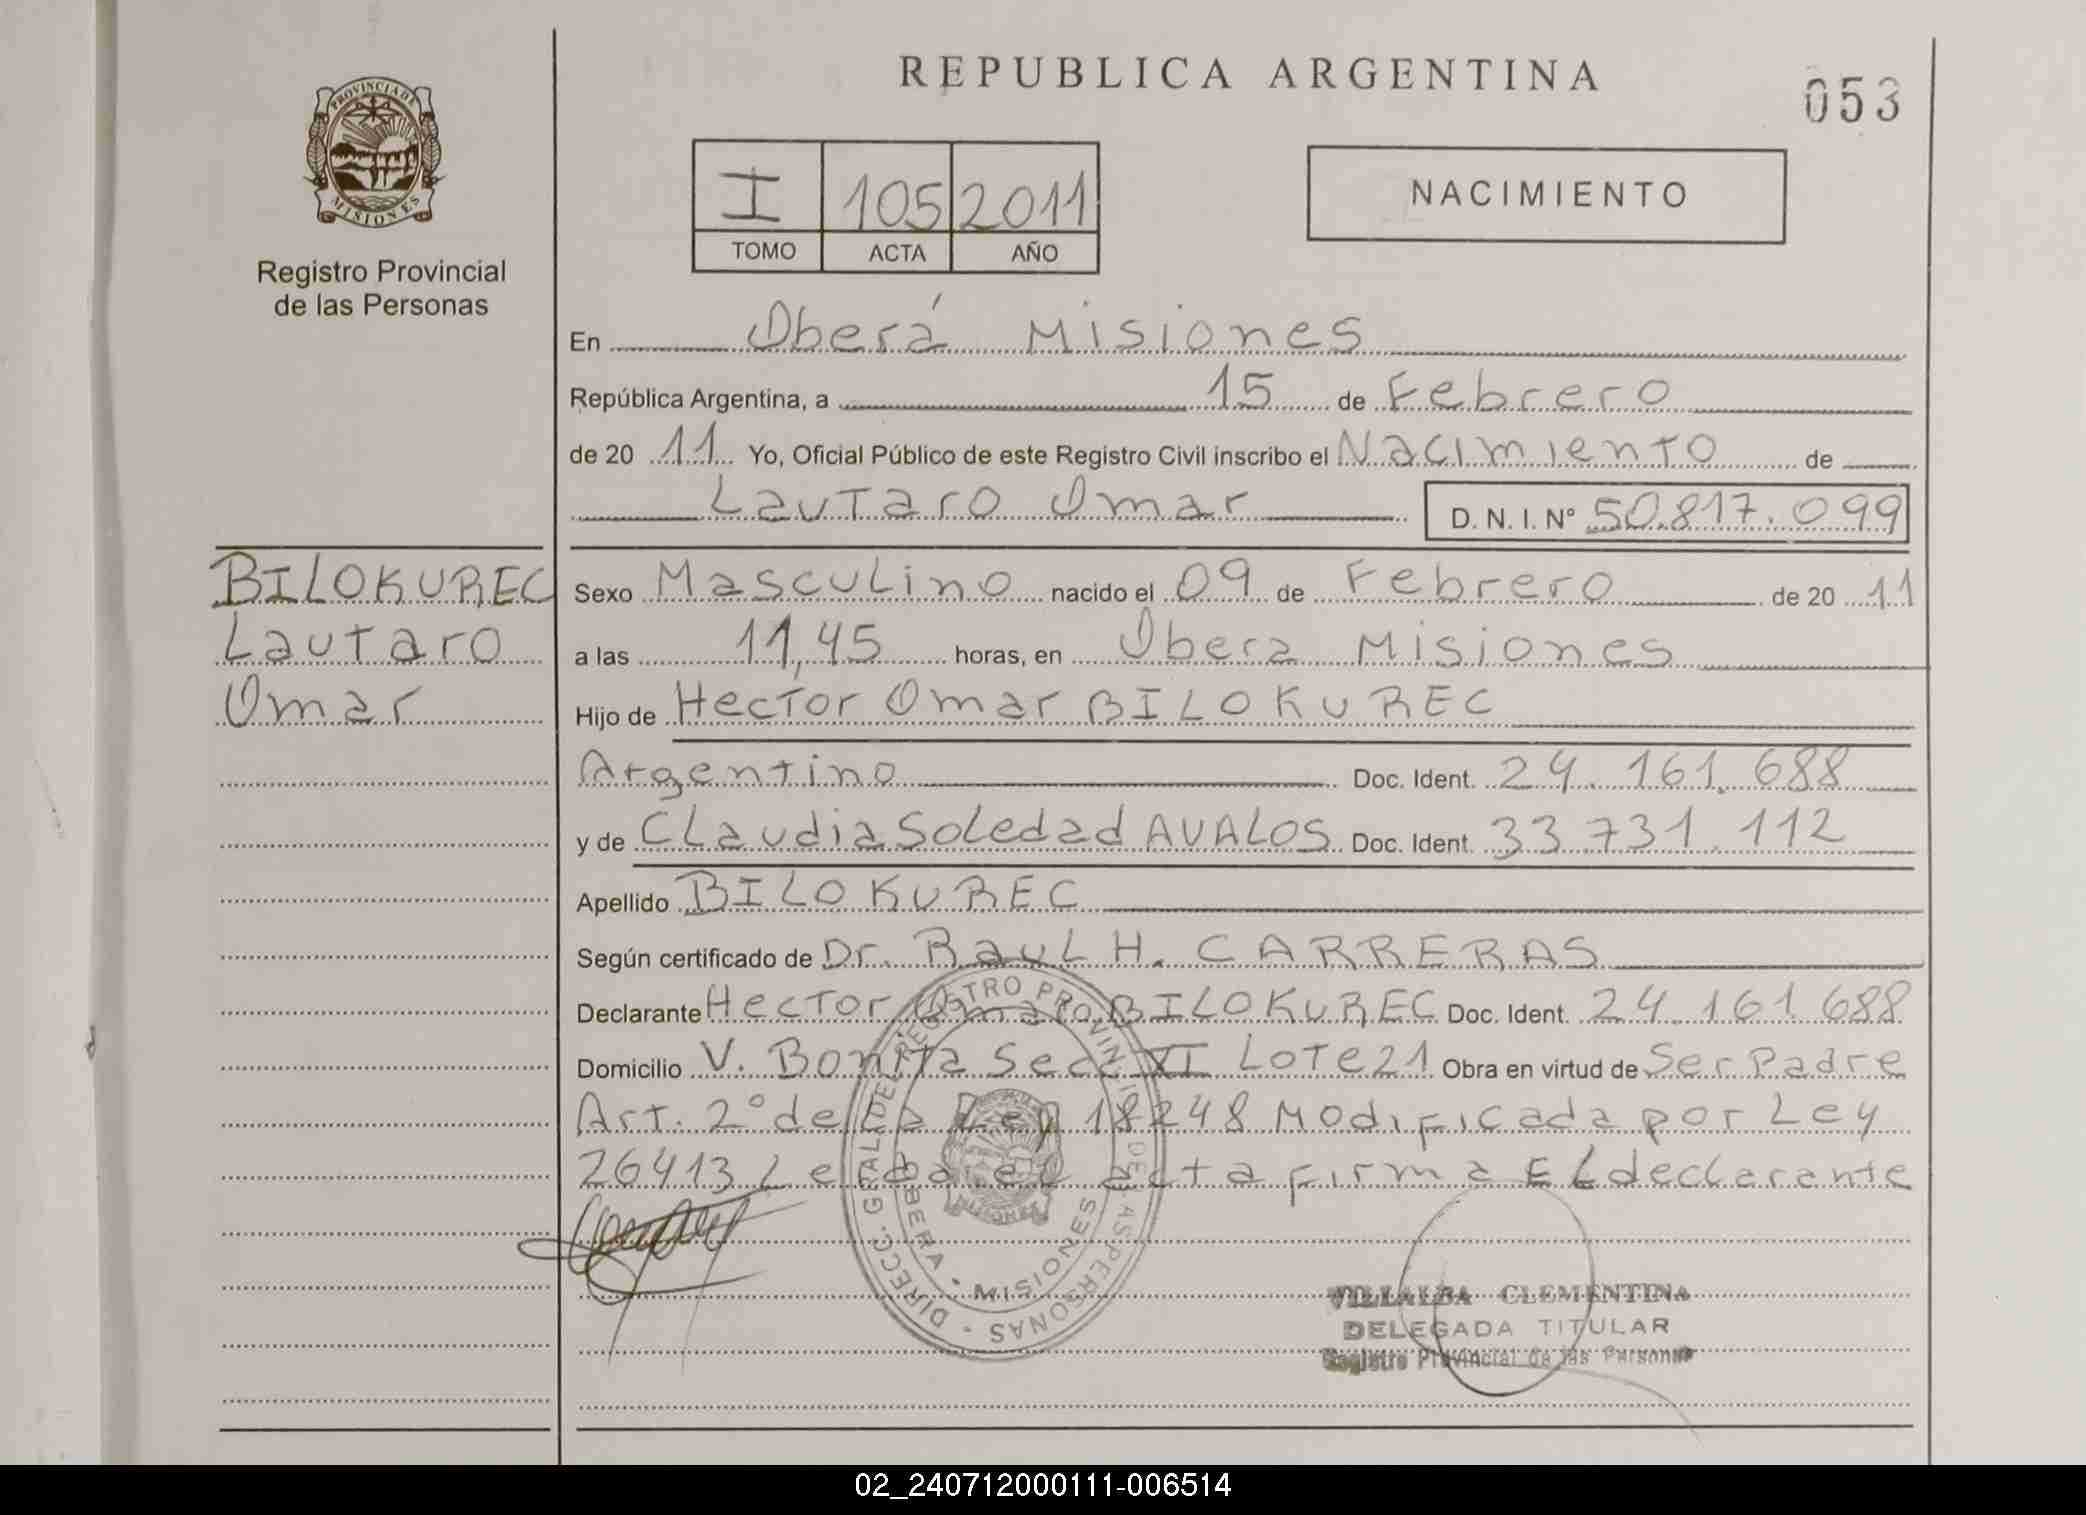 REPUBLICA ARGENTINA
053
PROVINCIA DE
MISIONES
Registro Provincial
de las Personas
I 105 2011
TOMO ACTA AÑO
NACIMIENTO
En Oberá Misiones
República Argentina, a 15 de Febrero
de 20 11 Yo, Oficial Público de este Registro Civil inscribo el Nacimiento de
Lautaro Omar D. N. I. Nº 50.817.099
BILOKUREC
Lautaro
Omar
Sexo Masculino nacido el 09 de Febrero de 20 11
a las 11,45 horas, en Obera Misiones
Hijo de Hector Omar BILOKUREC
Argentino Doc. Ident. 24.161.688
y de Claudia Soledad AVALOS Doc. Ident. 33.731.112
Apellido BILOKUREC
Según certificado de Dr. Raul H. CARRERAS
Declarante Hector Omar BILOKUREC Doc. Ident. 24.161.688
Domicilio V. Bonita Secc XI Lote 21 Obra en virtud de Ser Padre
Art. 2º de La Ley 18248 Modificada por Ley
26413 Leida el acta firma EL declarante
DIRECC. GRAL DEL REGISTRO PROVINCIAL DE LAS PERSONAS
OBERA - MISIONES
VILLALBA CLEMENTINA
DELEGADA TITULAR
Registro Provincial de las Personas
02_240712000111-006514